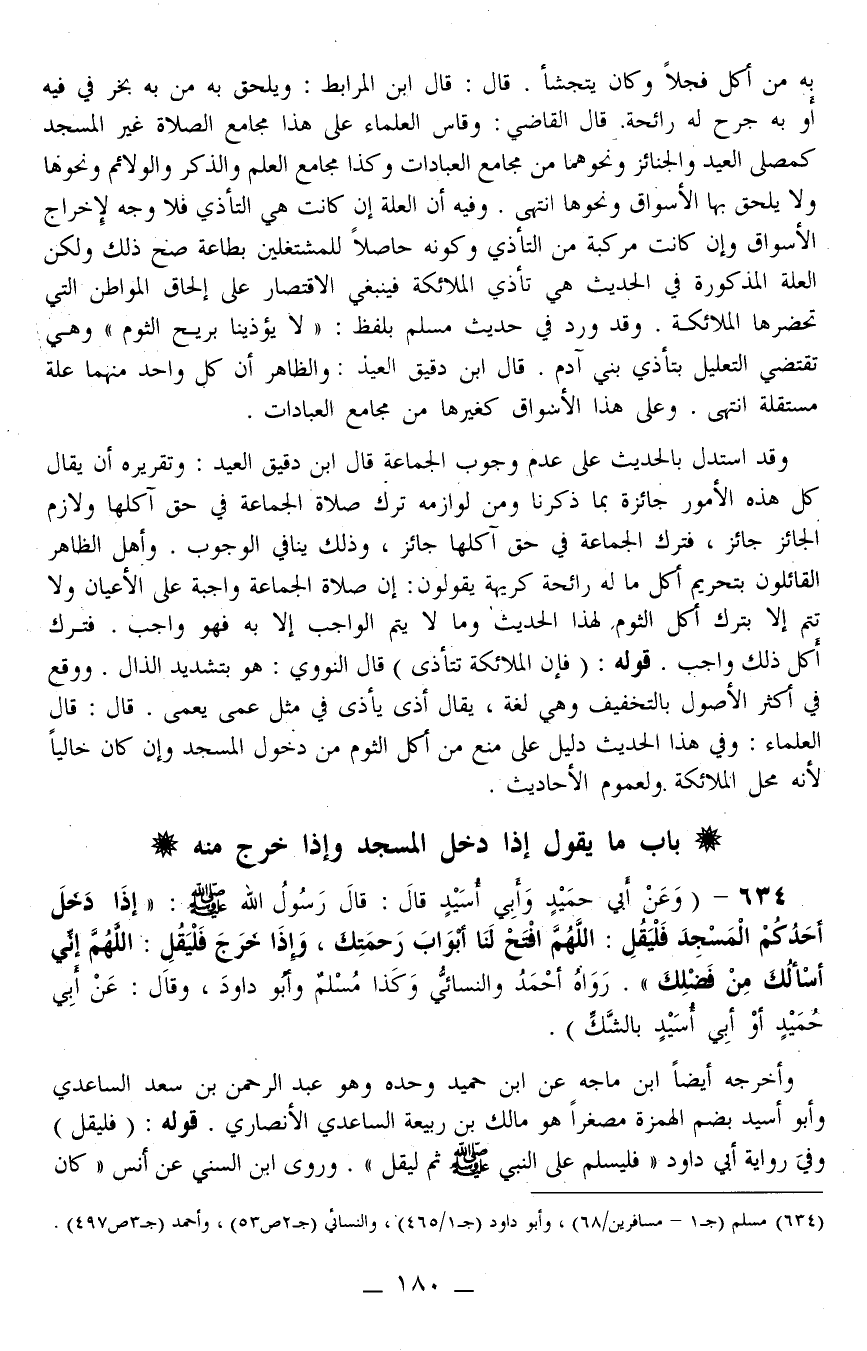 به من أكل فجلاً وكان يتجشأ . قال : قال ابن المرابط : ويلحق به من به بخر في فيه
أو به جرح له رائحة. قال القاضي : وقاس العلماء على هذا مجامع الصلاة غير المسجد
كمصلى العيد والجنائز ونحوهما من مجامع العبادات وكذا مجامع العلم والذكر والولائم ونحوها
ولا يلحق بها الأسواق ونحوها انتهى . وفيه أن العلة إن كانت هي التأذي فلا وجه لإخراج
الأسواق وإن كانت مركبة من التأذي وكونه حاصلاً للمشتغلين بطاعة صح ذلك ولكن
العلة المذكورة في الحديث هي تأذي الملائكة فينبغي الاقتصار على إلحاق المواطن التي
تحضرها الملائكة . وقد ورد في حديث مسلم بلفظ : « لا يؤذينا بريح الثوم » وهي
تقتضي التعليل بتأذي بني آدم . قال ابن دقيق العيذ : والظاهر أن كل واحد منهما علة
مستقلة انتهى . وعلى هذا الأسواق كغيرها من مجامع العبادات .
وقد استدل بالحديث على عدم وجوب الجماعة قال ابن دقيق العيد : وتقريره أن يقال
كل هذه الأمور جائزة بما ذكرنا ومن لوازمه ترك صلاة الجماعة في حق آكلها ولازم
الجائز جائز ، فترك الجماعة في حق آكلها جائز ، وذلك ينافي الوجوب . وأهل الظاهر
القائلون بتحريم أكل ما له رائحة كريهة يقولون: إن صلاة الجماعة واجبة على الأعيان ولا
تتم إلا بترك أكل الثوم لهذا الحديث وما لا يتم الواجب إلا به فهو واجب . فترك
أكل ذلك واجب . قوله : ( فإن الملائكة تتأذى ) قال النووي : هو بتشديد الذال . ووقع
في أكثر الأصول بالتخفيف وهي لغة ، يقال أذى يأذى في مثل عمى يعمى . قال : قال
العلماء : وفي هذا الحديث دليل على منع من أكل الثوم من دخول المسجد وإن كان خالياً
لأنه محل الملائكة ولعموم الأحاديث .
باب ما يقول إذا دخل المسجد وإذا خرج منه
٦٣٤ – ( وَعَنْ أَبي حمَيْدٍ وَأَبي أُسَيْدٍ قالَ : قالَ رَسُولُ الله ﷺ : « إِذَا دَخَلَ
أَحَدُكُمْ الْمَسْجِدَ فَلْيَقُلِ : اللَّهُمَّ افْتَحْ لَنَا أَبْوَابَ رَحمَتِكَ ، وَإِذَا خَرَجَ فَلْيَقُلِ : اللَّهُمَّ إِنِّي
أَسْأَلُكَ مِنْ فَضْلِكَ » . رَوَاهُ أَحْمَدُ والنسائيُّ وَكَذا مُسْلمٌ وأَبُو داودَ ، وقالَ : عَنْ أَبِي
حُمَيْدٍ أَوْ أَبِي أُسَيْدٍ بالشَّكِّ ) .
وأخرجه أيضاً ابن ماجه عن ابن حميد وحده وهو عبد الرحمن بن سعد الساعدي
وأبو أسيد بضم الهمزة مصغراً هو مالك بن ربيعة الساعدي الأنصاري . قوله : ( فليقل )
وفي رواية أبي داود « فليسلم على النبي ﷺ ثم ليقل » . وروى ابن السني عن أنس « كان
(٦٣٤) مسلم (جـ١ – مسافرين/٦٨) ، وأبو داود (جـ٤٦٥/١) ، والنسائي (جـ٢ص٥٣) ، وأحمد (جـ٣ص٤٩٧) .
— ١٨٠ —